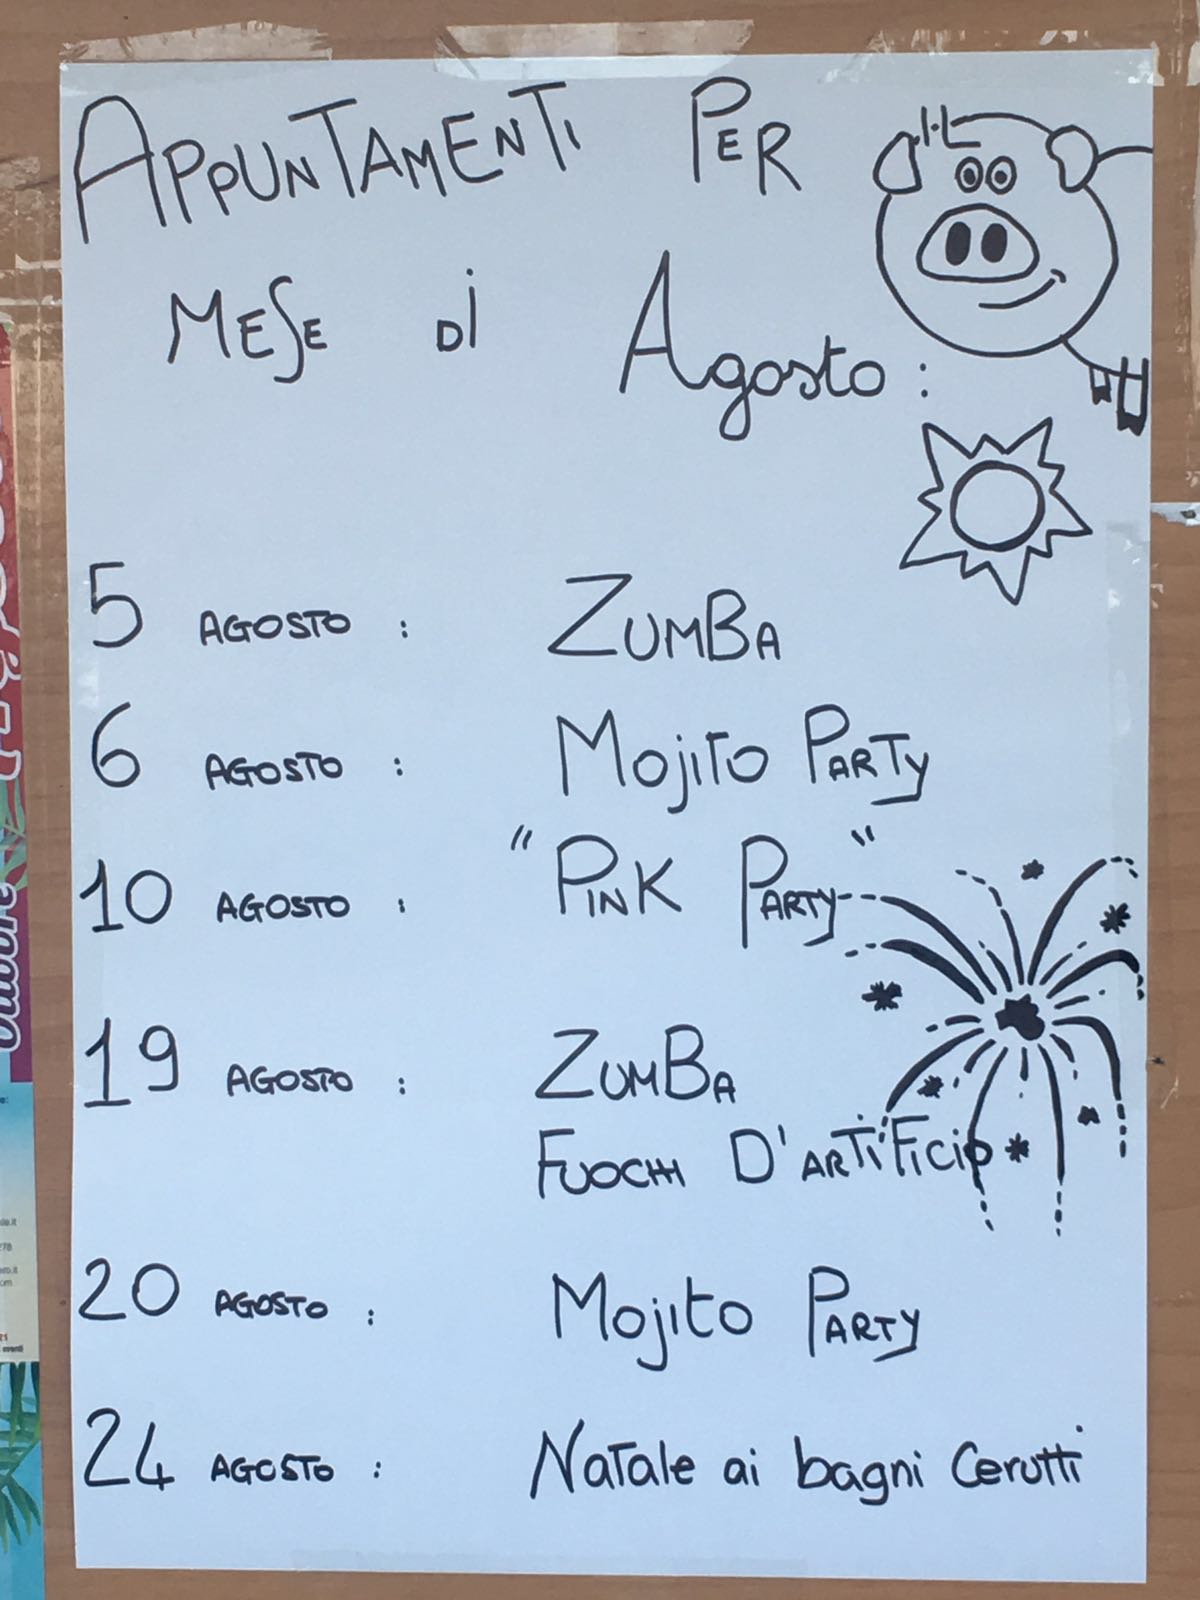 APPUNTAMENTI PER
MESE DI Agosto :
5 AGOSTO : ZUMBA
6 AGOSTO : Mojito PARTY
10 AGOSTO : "PINK PARTY"
19 AGOSTO : ZUMBA
FUOCHI D'ARTIFICIO
20 AGOSTO : Mojito PARTY
24 AGOSTO : Natale ai bagni Cerutti